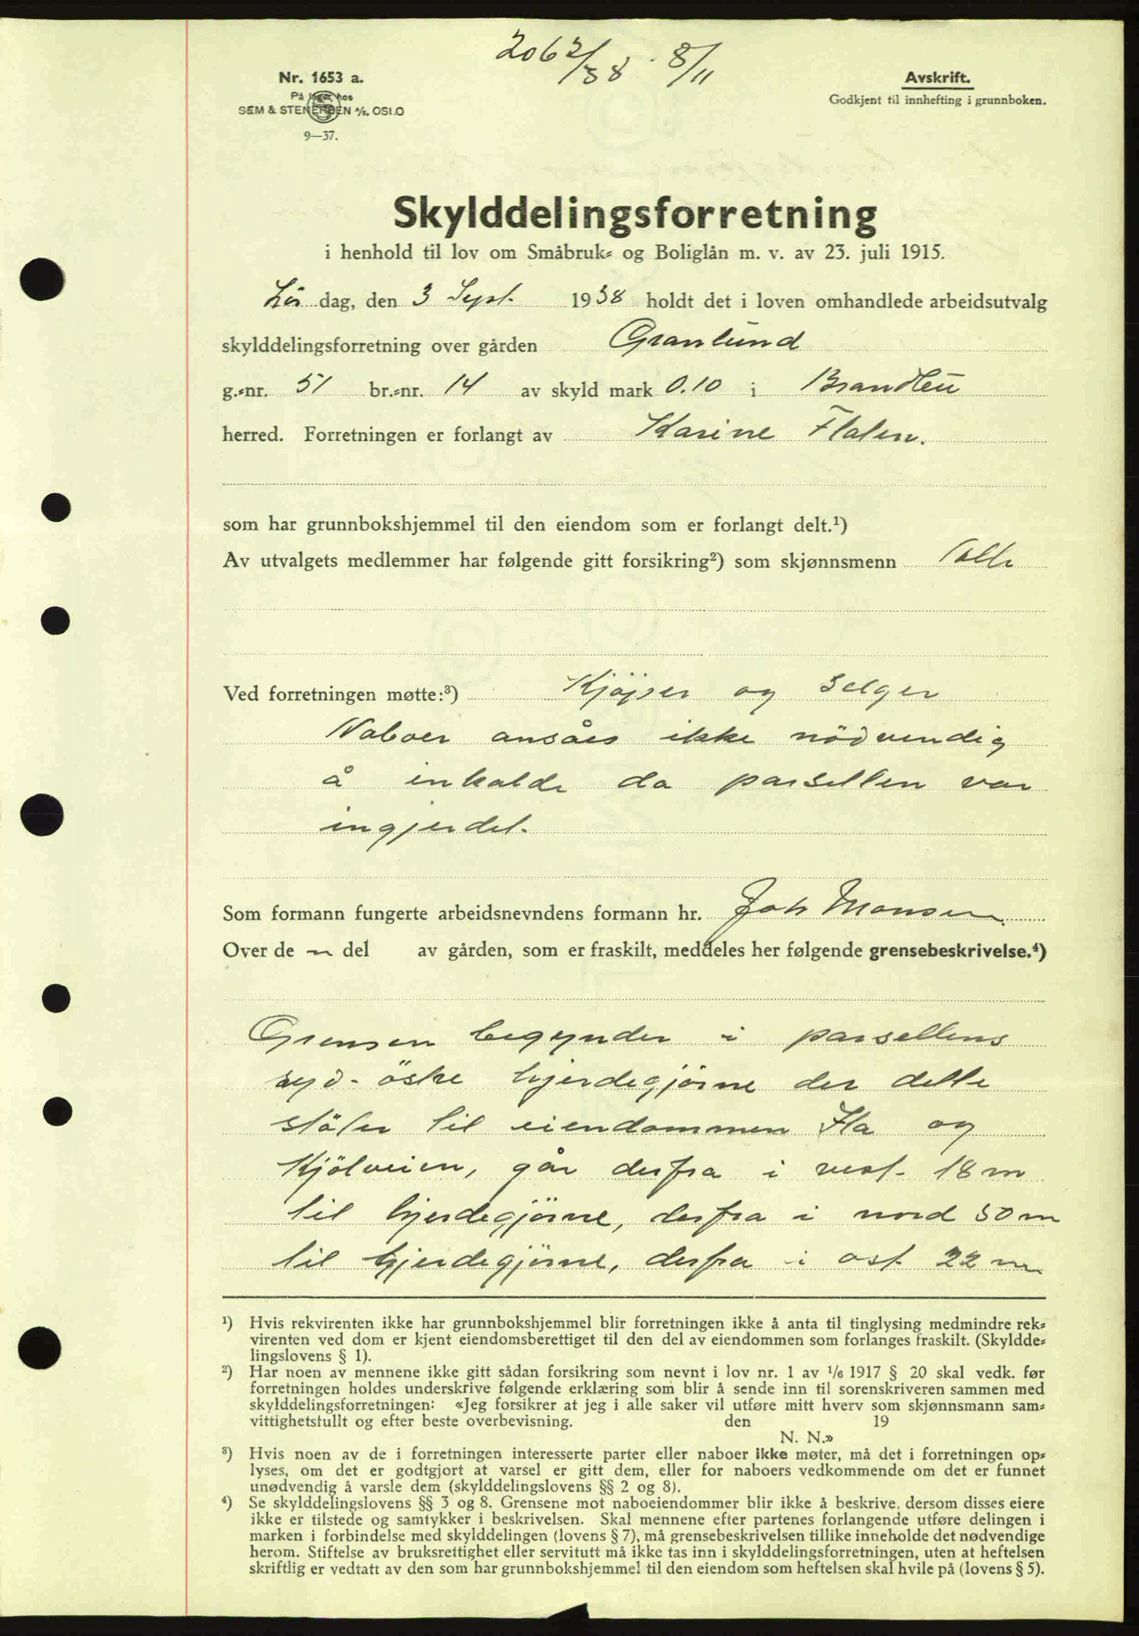 2062/38 . 8/11
Nr. 1653 a.
På lager hos
SEM & STENERSEN A/S, OSLO
9—37.
Avskrift.
Godkjent til innhefting i grunnboken.
Skylddelingsforretning
i henhold til lov om Småbruk- og Boliglån m. v. av 23. juli 1915.
Lör dag, den 3 Sept. 1938 holdt det i loven omhandlede arbeidsutvalg
skylddelingsforretning over gården Granlund
g.-nr. 51 br.-nr. 14 av skyld mark 0.10 i Brandbu
herred. Forretningen er forlangt av Karine Flaten.
som har grunnbokshjemmel til den eiendom som er forlangt delt.¹)
Av utvalgets medlemmer har følgende gitt forsikring²) som skjønnsmenn Alle
Ved forretningen møtte:³) Kjöper og Selger
Naboer ansåes ikke nödvendig
å inkalde da parsellen var
ingjerdet.
Som formann fungerte arbeidsnevndens formann hr. Joh Monsen
Over de n del av gården, som er fraskilt, meddeles her følgende grensebeskrivelse.⁴)
Grensen begynder i parsellens
syd-östre hjerdegjörne der dette
stöter til eiendommen Fla og
Kjölveien, går derfra i vest 18 m
til hjerdegjörne, derfra i nord 50 m
til hjerdegjörne, derfra i ost 22 m
¹) Hvis rekvirenten ikke har grunnbokshjemmel blir forretningen ikke å anta til tinglysing medmindre rek-
virenten ved dom er kjent eiendomsberettiget til den del av eiendommen som forlanges fraskilt. (Skyldde-
lingslovens § 1).
²) Har noen av mennene ikke gitt sådan forsikring som nevnt i lov nr. 1 av 1/6 1917 § 20 skal vedk. før
forretningen holdes underskrive følgende erklæring som blir å sende inn til sorenskriveren sammen med
skylddelingsforretningen: «Jeg forsikrer at jeg i alle saker vil utføre mitt hverv som skjønnsmann sam-
vittighetsfullt og efter beste overbevisning. den 19
N. N.»
³) Hvis noen av de i forretningen interesserte parter eller naboer ikke møter, må det i forretningen op-
lyses, om det er godtgjort at varsel er gitt dem, eller for naboers vedkommende om det er funnet
unødvendig å varsle dem (skylddelingslovens §§ 2 og 8).
⁴) Se skylddelingslovens §§ 3 og 8. Grensene mot naboeiendommer blir ikke å beskrive, dersom disses eiere
ikke er tilstede og samtykker i beskrivelsen. Skal mennene efter partenes forlangende utføre delingen i
marken i forbindelse med skylddelingen (lovens § 7), må grensebeskrivelsen tillike inneholde det nødvendige
herom. Stiftelse av bruksrettighet eller servitutt må ikke tas inn i skylddelingsforretningen, uten at heftelsen
skriftlig er vedtatt av den som har grunnbokshjemmel til den eiendom som heftelsen skal hvile på (lovens § 5).